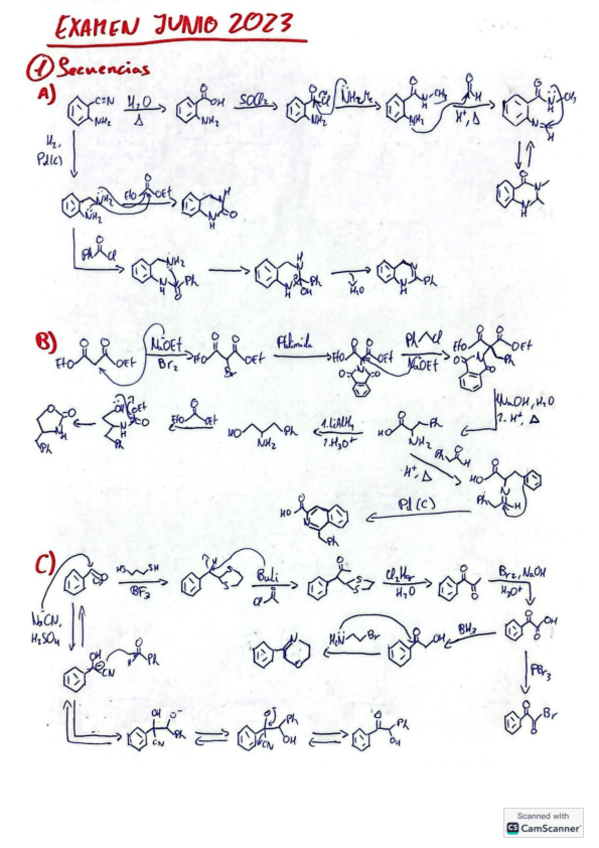 EXAMEN JUNIO 2023
① Secuencias
A)
C≡N
NH₂
H₂O
Δ
O
OH
NH₂
SOCl₂
O
Cl
NH₂
O
N-CH₃
H
NH₂
O
H
H⁺, Δ
O
CH₃
H
H₂,
Pd(C)
NH₂
NH₂
EtO
O
OEt
N
H
O
N
H
O
N
N
H
O
Ph
Cl
NH₂
N
H
O
Ph
H
N
N
H
Ph
OH
H₂O
N
N
H
Ph
B)
EtO
O
O
OEt
NaOEt
Br₂
EtO
O
O
OEt
Br
EtO
O
O
OEt
N
O
O
Ph
Cl
NaOEt
EtO
O
O
OEt
Ph
N
O
O
1. NaOH, H₂O
2. H⁺, Δ
O
O
N
H
Ph
OH
OEt
O
N
H
Ph
EtO
O
OEt
HO
NH₂
Ph
1. LiAlH₄
2. H₃O⁺
HO
O
NH₂
Ph
Ph
O
H
H⁺, Δ
HO
O
N
Ph
H
Pd(C)
HO
O
N
Ph
C)
O
HS
SH
BF₃
H
S
S
BuLi
Cl
O
O
S
S
H₂O
O
O
Br₂, NaOH
H₃O⁺
NaCN,
H₂SO₄
O
O
OH
BH₃
O
OH
H₂N
Br
N
O
PBr₃
OH
CN
O
H
Ph
O
O
Br
OH
O⁻
Ph
CN
O
Ph
CN
OH
O
Ph
OH
Scanned with
CS CamScanner